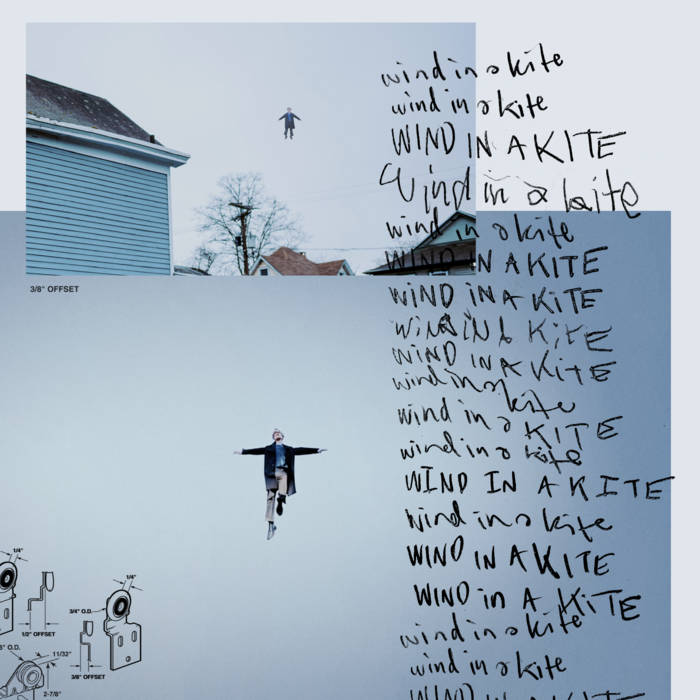 wind in a kite
wind in a kite
WIND IN A KITE
wind in a kite
wind in a kite
WIND IN A KITE
3/8" OFFSET
WIND IN A KITE
WIND IN A KITE
WIND IN A KITE
wind in a kite
wind in a KITE
wind in a kite
WIND IN A KITE
wind in a kite
WIND IN A KITE
WIND in A KITE
wind in a kite
wind in a kite
WIND IN A KITE
1/4"
1/4"
3/4" O.D.
1/2" OFFSET
O.D.
11/32"
3/8" OFFSET
2-7/8"